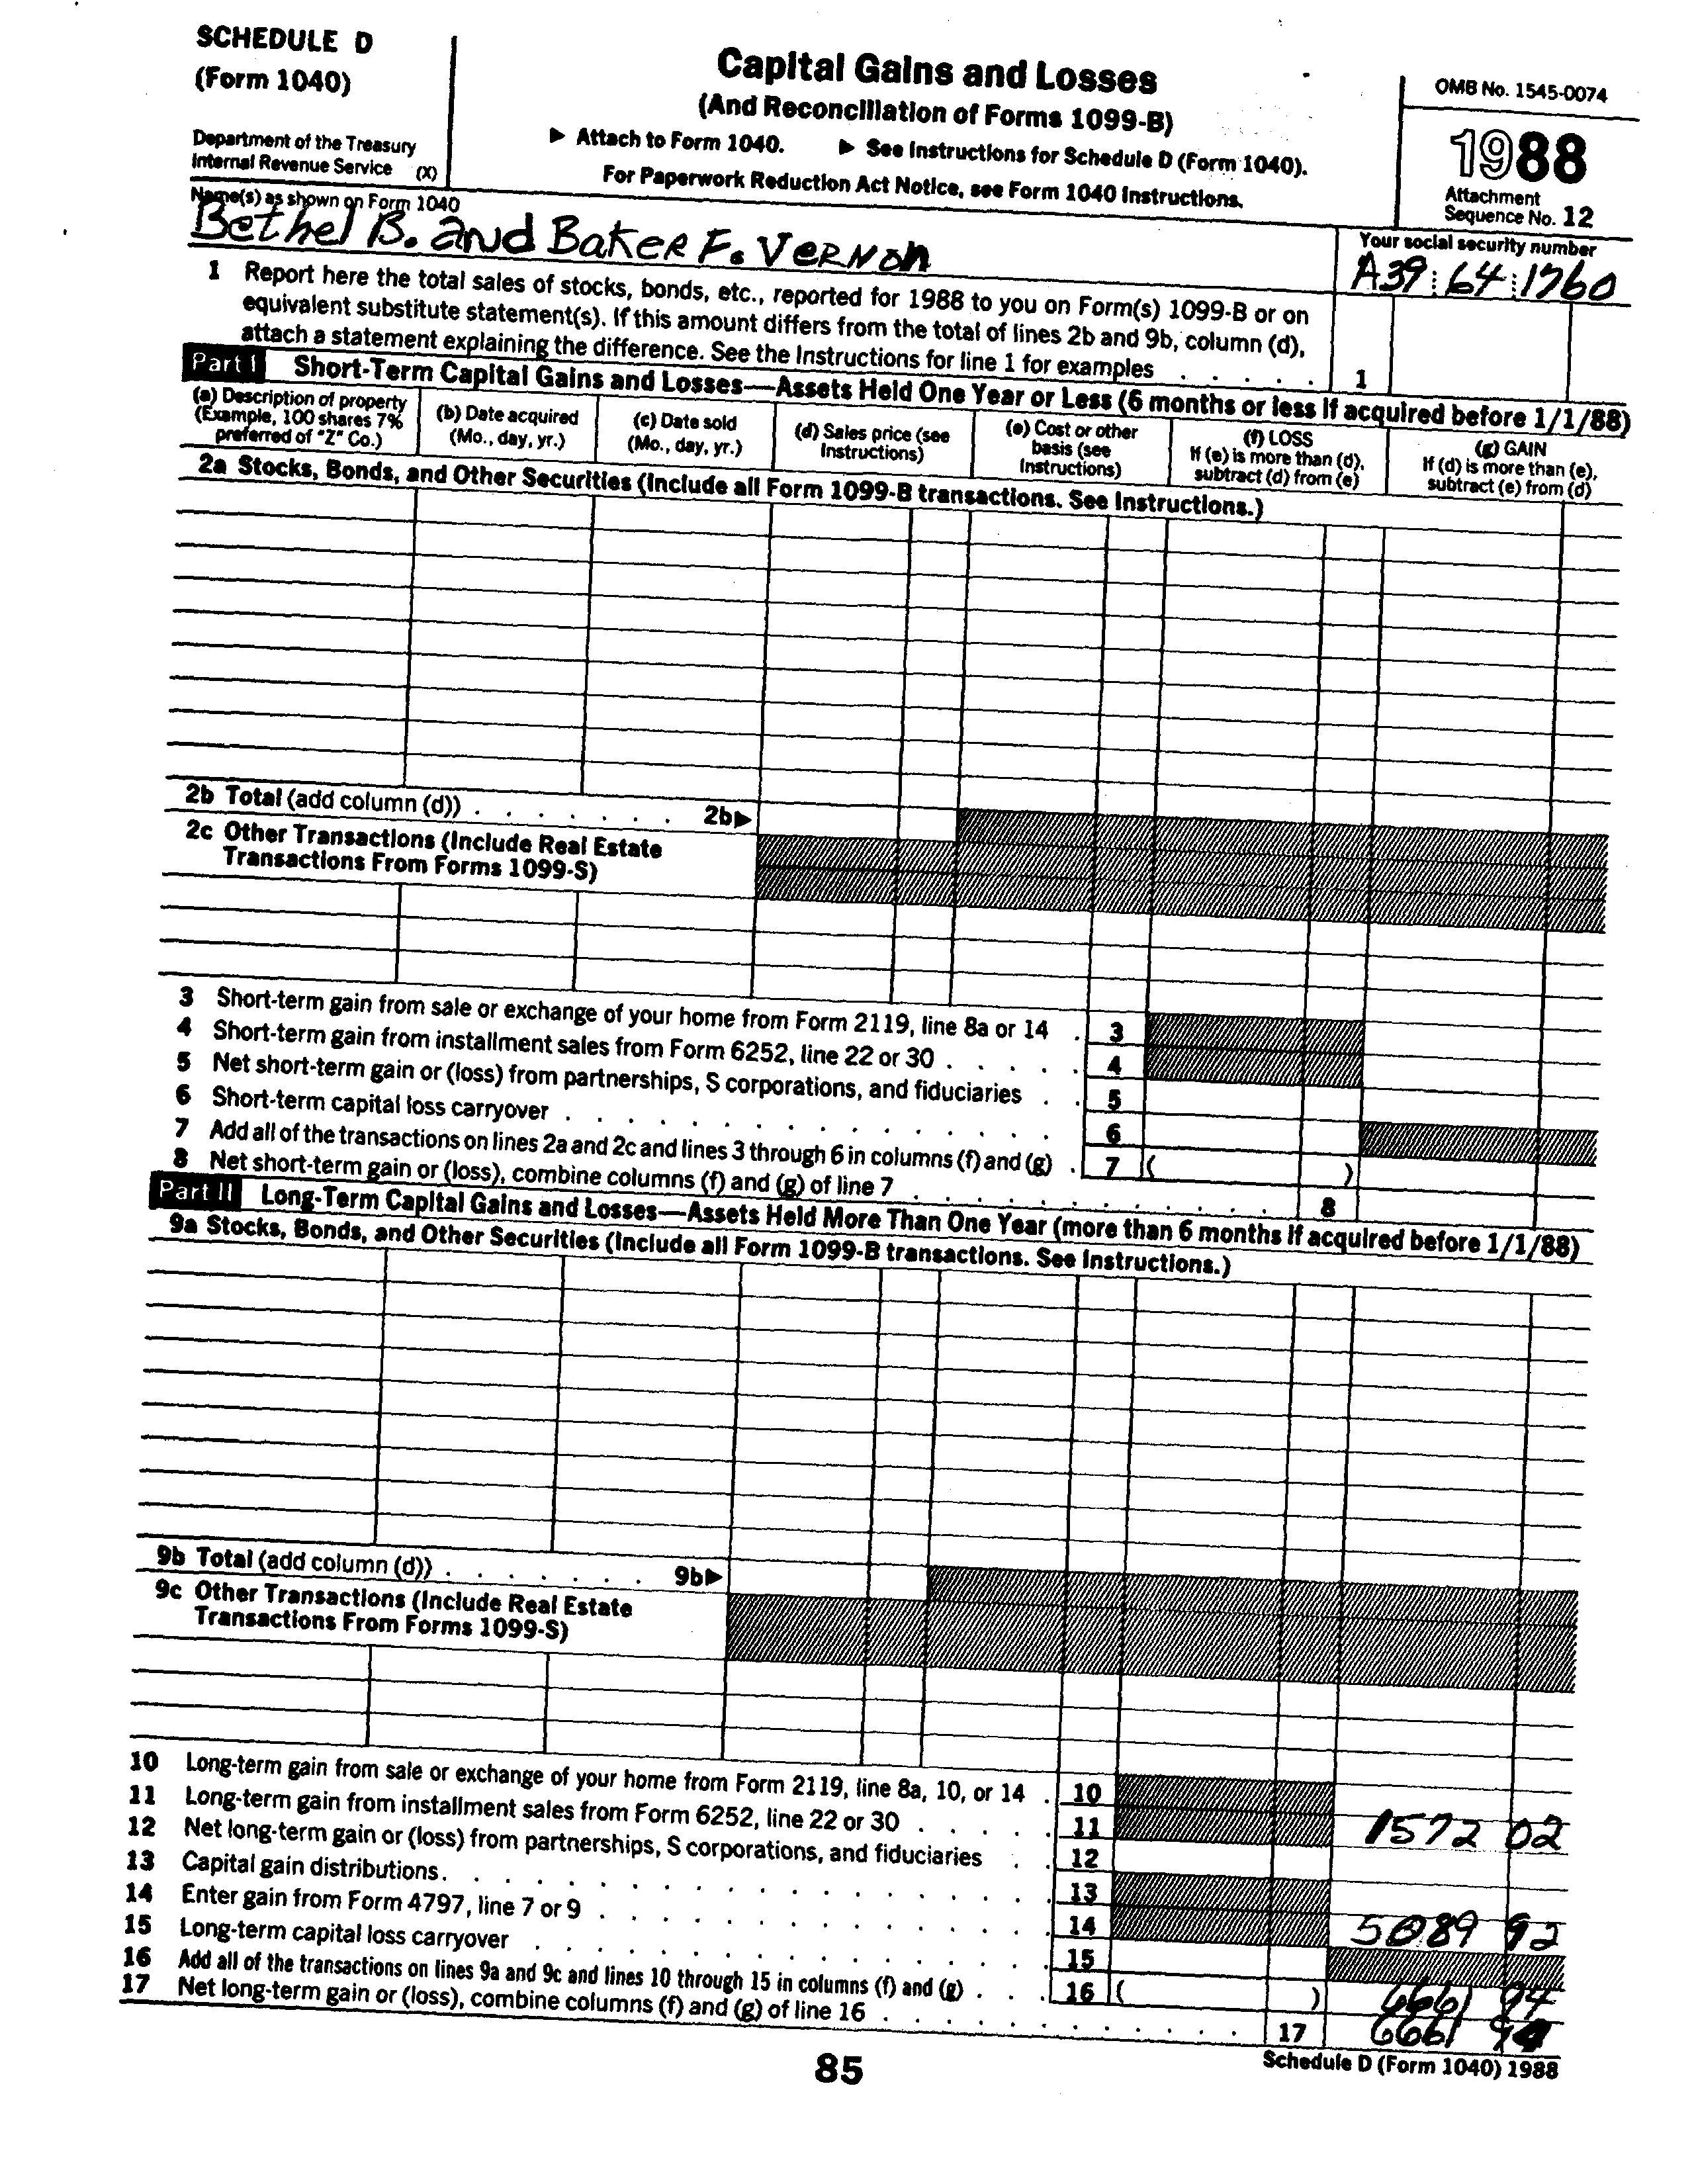 SCHEDULE D
(Form 1040)
Department of the Treasury
Internal Revenue Service (X)
Capital Gains and Losses
(And Reconciliation of Forms 1099-B)
▶ Attach to Form 1040. ▶ See Instructions for Schedule D (Form 1040).
For Paperwork Reduction Act Notice, see Form 1040 Instructions.
OMB No. 1545-0074
1988
Attachment
Sequence No. 12
Name(s) as shown on Form 1040
Bethel B. and Baker F. Vernon
Your social security number
A39:64:1760
1 Report here the total sales of stocks, bonds, etc., reported for 1988 to you on Form(s) 1099-B or on
equivalent substitute statement(s). If this amount differs from the total of lines 2b and 9b, column (d),
attach a statement explaining the difference. See the Instructions for line 1 for examples . . . . . 1
Part I Short-Term Capital Gains and Losses—Assets Held One Year or Less (6 months or less if acquired before 1/1/88)
(a) Description of property
(Example, 100 shares 7%
preferred of "Z" Co.)
(b) Date acquired
(Mo., day, yr.)
(c) Date sold
(Mo., day, yr.)
(d) Sales price (see
Instructions)
(e) Cost or other
basis (see
Instructions)
(f) LOSS
If (e) is more than (d),
subtract (d) from (e)
(g) GAIN
If (d) is more than (e),
subtract (e) from (d)
2a Stocks, Bonds, and Other Securities (Include all Form 1099-B transactions. See Instructions.)
2b Total (add column (d)) . . . . . . . 2b▶
2c Other Transactions (Include Real Estate
Transactions From Forms 1099-S)
3 Short-term gain from sale or exchange of your home from Form 2119, line 8a or 14 . 3
4 Short-term gain from installment sales from Form 6252, line 22 or 30 . . . . . 4
5 Net short-term gain or (loss) from partnerships, S corporations, and fiduciaries . . 5
6 Short-term capital loss carryover . . . . . . . . . . . . . . . 6
7 Add all of the transactions on lines 2a and 2c and lines 3 through 6 in columns (f) and (g) . 7 ( )
8 Net short-term gain or (loss), combine columns (f) and (g) of line 7 . . . . . . . . . . . . 8
Part II Long-Term Capital Gains and Losses—Assets Held More Than One Year (more than 6 months if acquired before 1/1/88)
9a Stocks, Bonds, and Other Securities (Include all Form 1099-B transactions. See Instructions.)
9b Total (add column (d)) . . . . . . . 9b▶
9c Other Transactions (Include Real Estate
Transactions From Forms 1099-S)
10 Long-term gain from sale or exchange of your home from Form 2119, line 8a, 10, or 14 . 10
11 Long-term gain from installment sales from Form 6252, line 22 or 30 . . . . . 11 1572 02
12 Net long-term gain or (loss) from partnerships, S corporations, and fiduciaries . . 12
13 Capital gain distributions . . . . . . . . . . . . . . . . . . 13
14 Enter gain from Form 4797, line 7 or 9 . . . . . . . . . . . . . . 14 5089 92
15 Long-term capital loss carryover . . . . . . . . . . . . . . . . 15
16 Add all of the transactions on lines 9a and 9c and lines 10 through 15 in columns (f) and (g) . . . 16 ( ) 6661 94
17 Net long-term gain or (loss), combine columns (f) and (g) of line 16 . . . . . . . . . . . . 17 6661 94
85
Schedule D (Form 1040) 1988